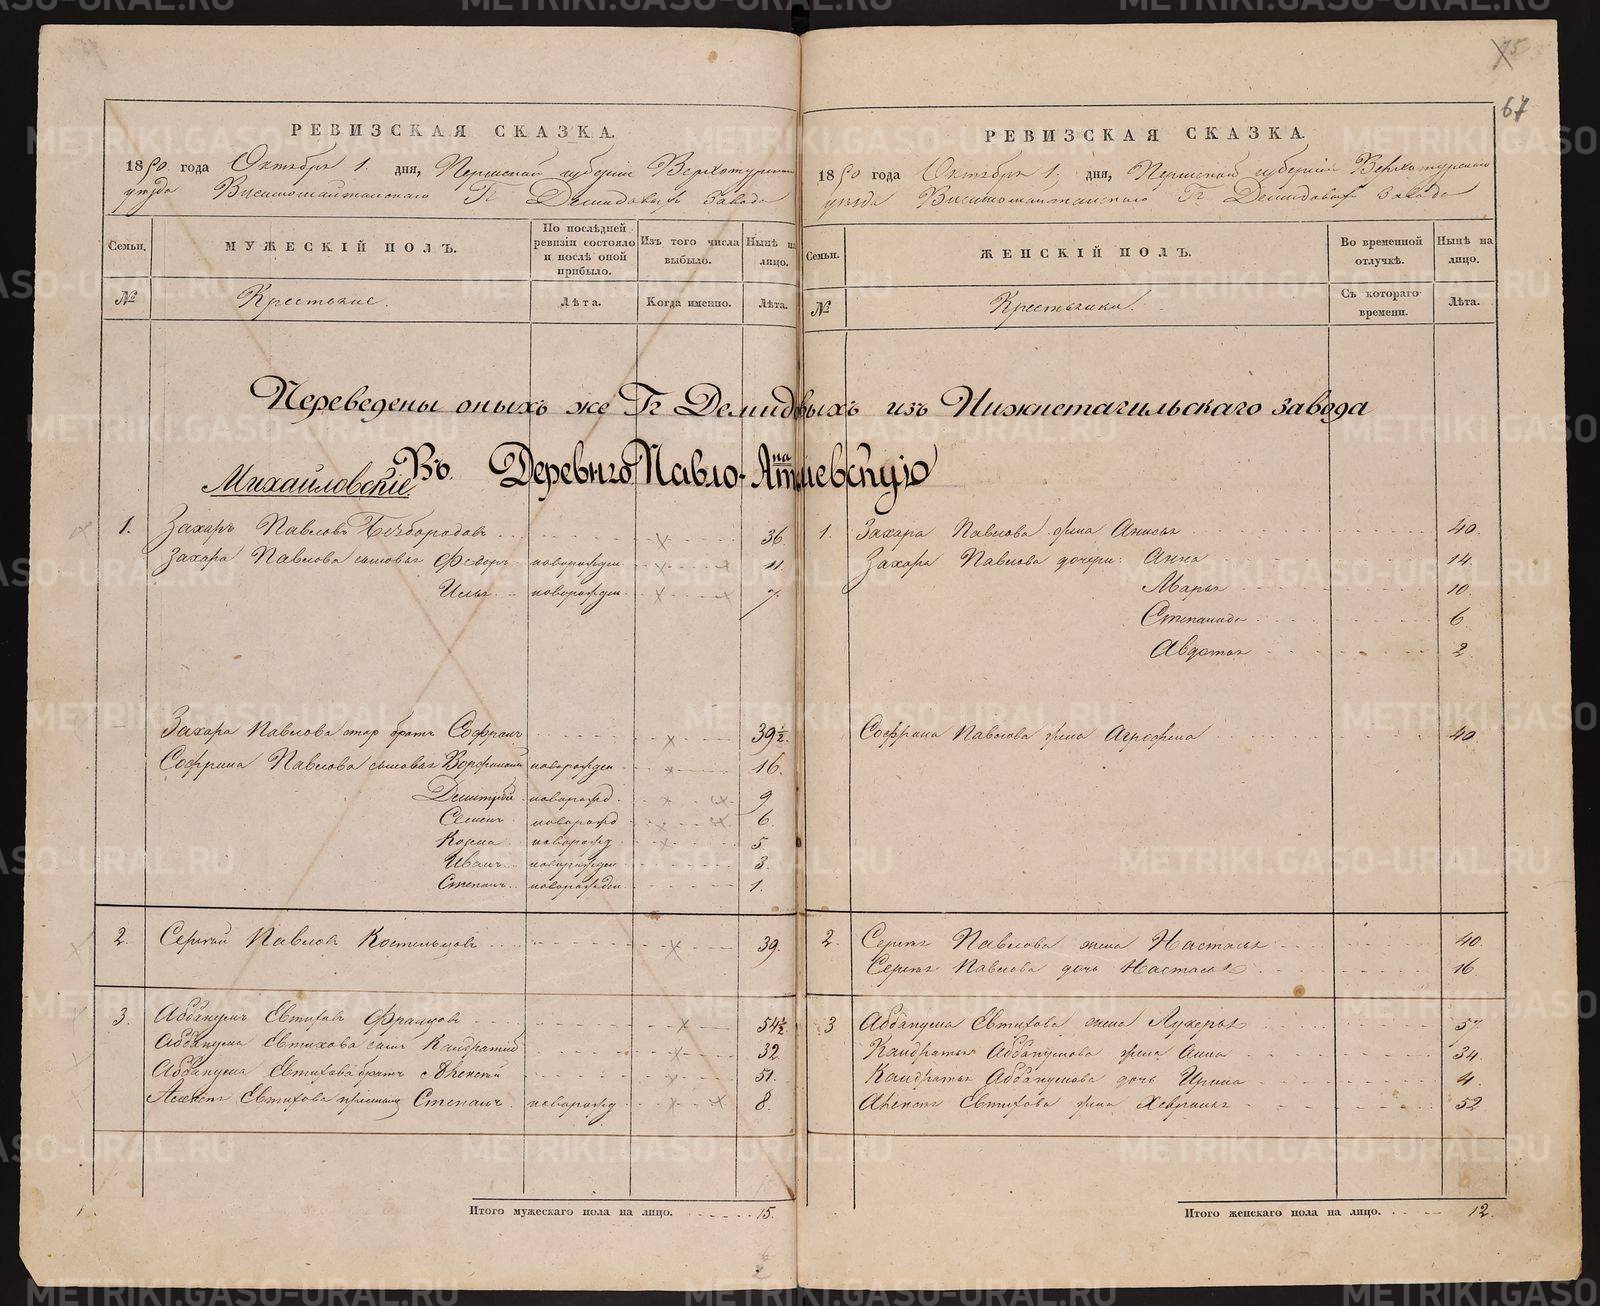 75
67
РЕВИЗСКАЯ СКАЗКА.
1850 года Октября 1 дня, Пермской губернiи Верхотурскаго
уѣзда Висимошайтанскаго Гг Демидовыхъ завода
Семьи. МУЖЕСКIЙ ПОЛЪ. По послѣдней ревизiи состояло и послѣ оной прибыло. Изъ того числа выбыло. Нынѣ на лицо.
№ Крестьяне. Лѣта. Когда именно. Лѣта.
РЕВИЗСКАЯ СКАЗКА.
1850 года Октября 1 дня, Пермской губернiи Верхотурскаго
уѣзда Висимошайтанскаго Гг Демидовыхъ завода
Семьи. ЖЕНСКIЙ ПОЛЪ. Во временной отлучкѣ. Нынѣ на лицо.
№ Крестьянки. Съ котораго времени. Лѣта.
Переведены оныхъ же Гг Демидовыхъ изъ Нижнетагильскаго завода
Въ Деревню Павло-Анатолiевскую
Михайловскiе
1. Захаръ Павловъ Безбородовъ 36
Захара Павлова сыновья Федоръ новорожден 11
Илья новорожден 7
Захара Павлова стар братъ Софронъ 39½
Софрона Павлова сыновья новорожден 16
Дмитрiй новорожд. 9
Семенъ новорожд 6
Козма новорожд 5
Иванъ новорожден 3
Степанъ новорожден 1.
2. Сергѣй Павловъ Костенцовъ 39.
3. Аввакумъ Евтиховъ Францовъ 54½
Аввакума Евтихова сынъ Кандратiй 32
Аввакума Евтихова братъ Алексѣй 51.
Алексѣя Евтихова прiемышъ Степанъ новорожд 8.
Итого мужескаго пола на лицо. 15.
1. Захара Павлова жена Анисья 40.
Захара Павлова дочери: Анна 14.
Марья 10.
Степанида 6
Авдотья 2.
Софрона Павлова жена Агрофена 40
2. Сергѣя Павлова жена Настасья 40.
Сергѣя Павлова дочь Настасья 16
3 Аввакума Евтихова жена Лукерья 57.
Кандратья Аввакумова жена Анна 34.
Кандратья Аввакумова дочь Ирина 4.
Алексѣя Евтихова жена Хевронья 52
Итого женскаго пола на лицо. 12.
METRIKI.GASO-URAL.RU